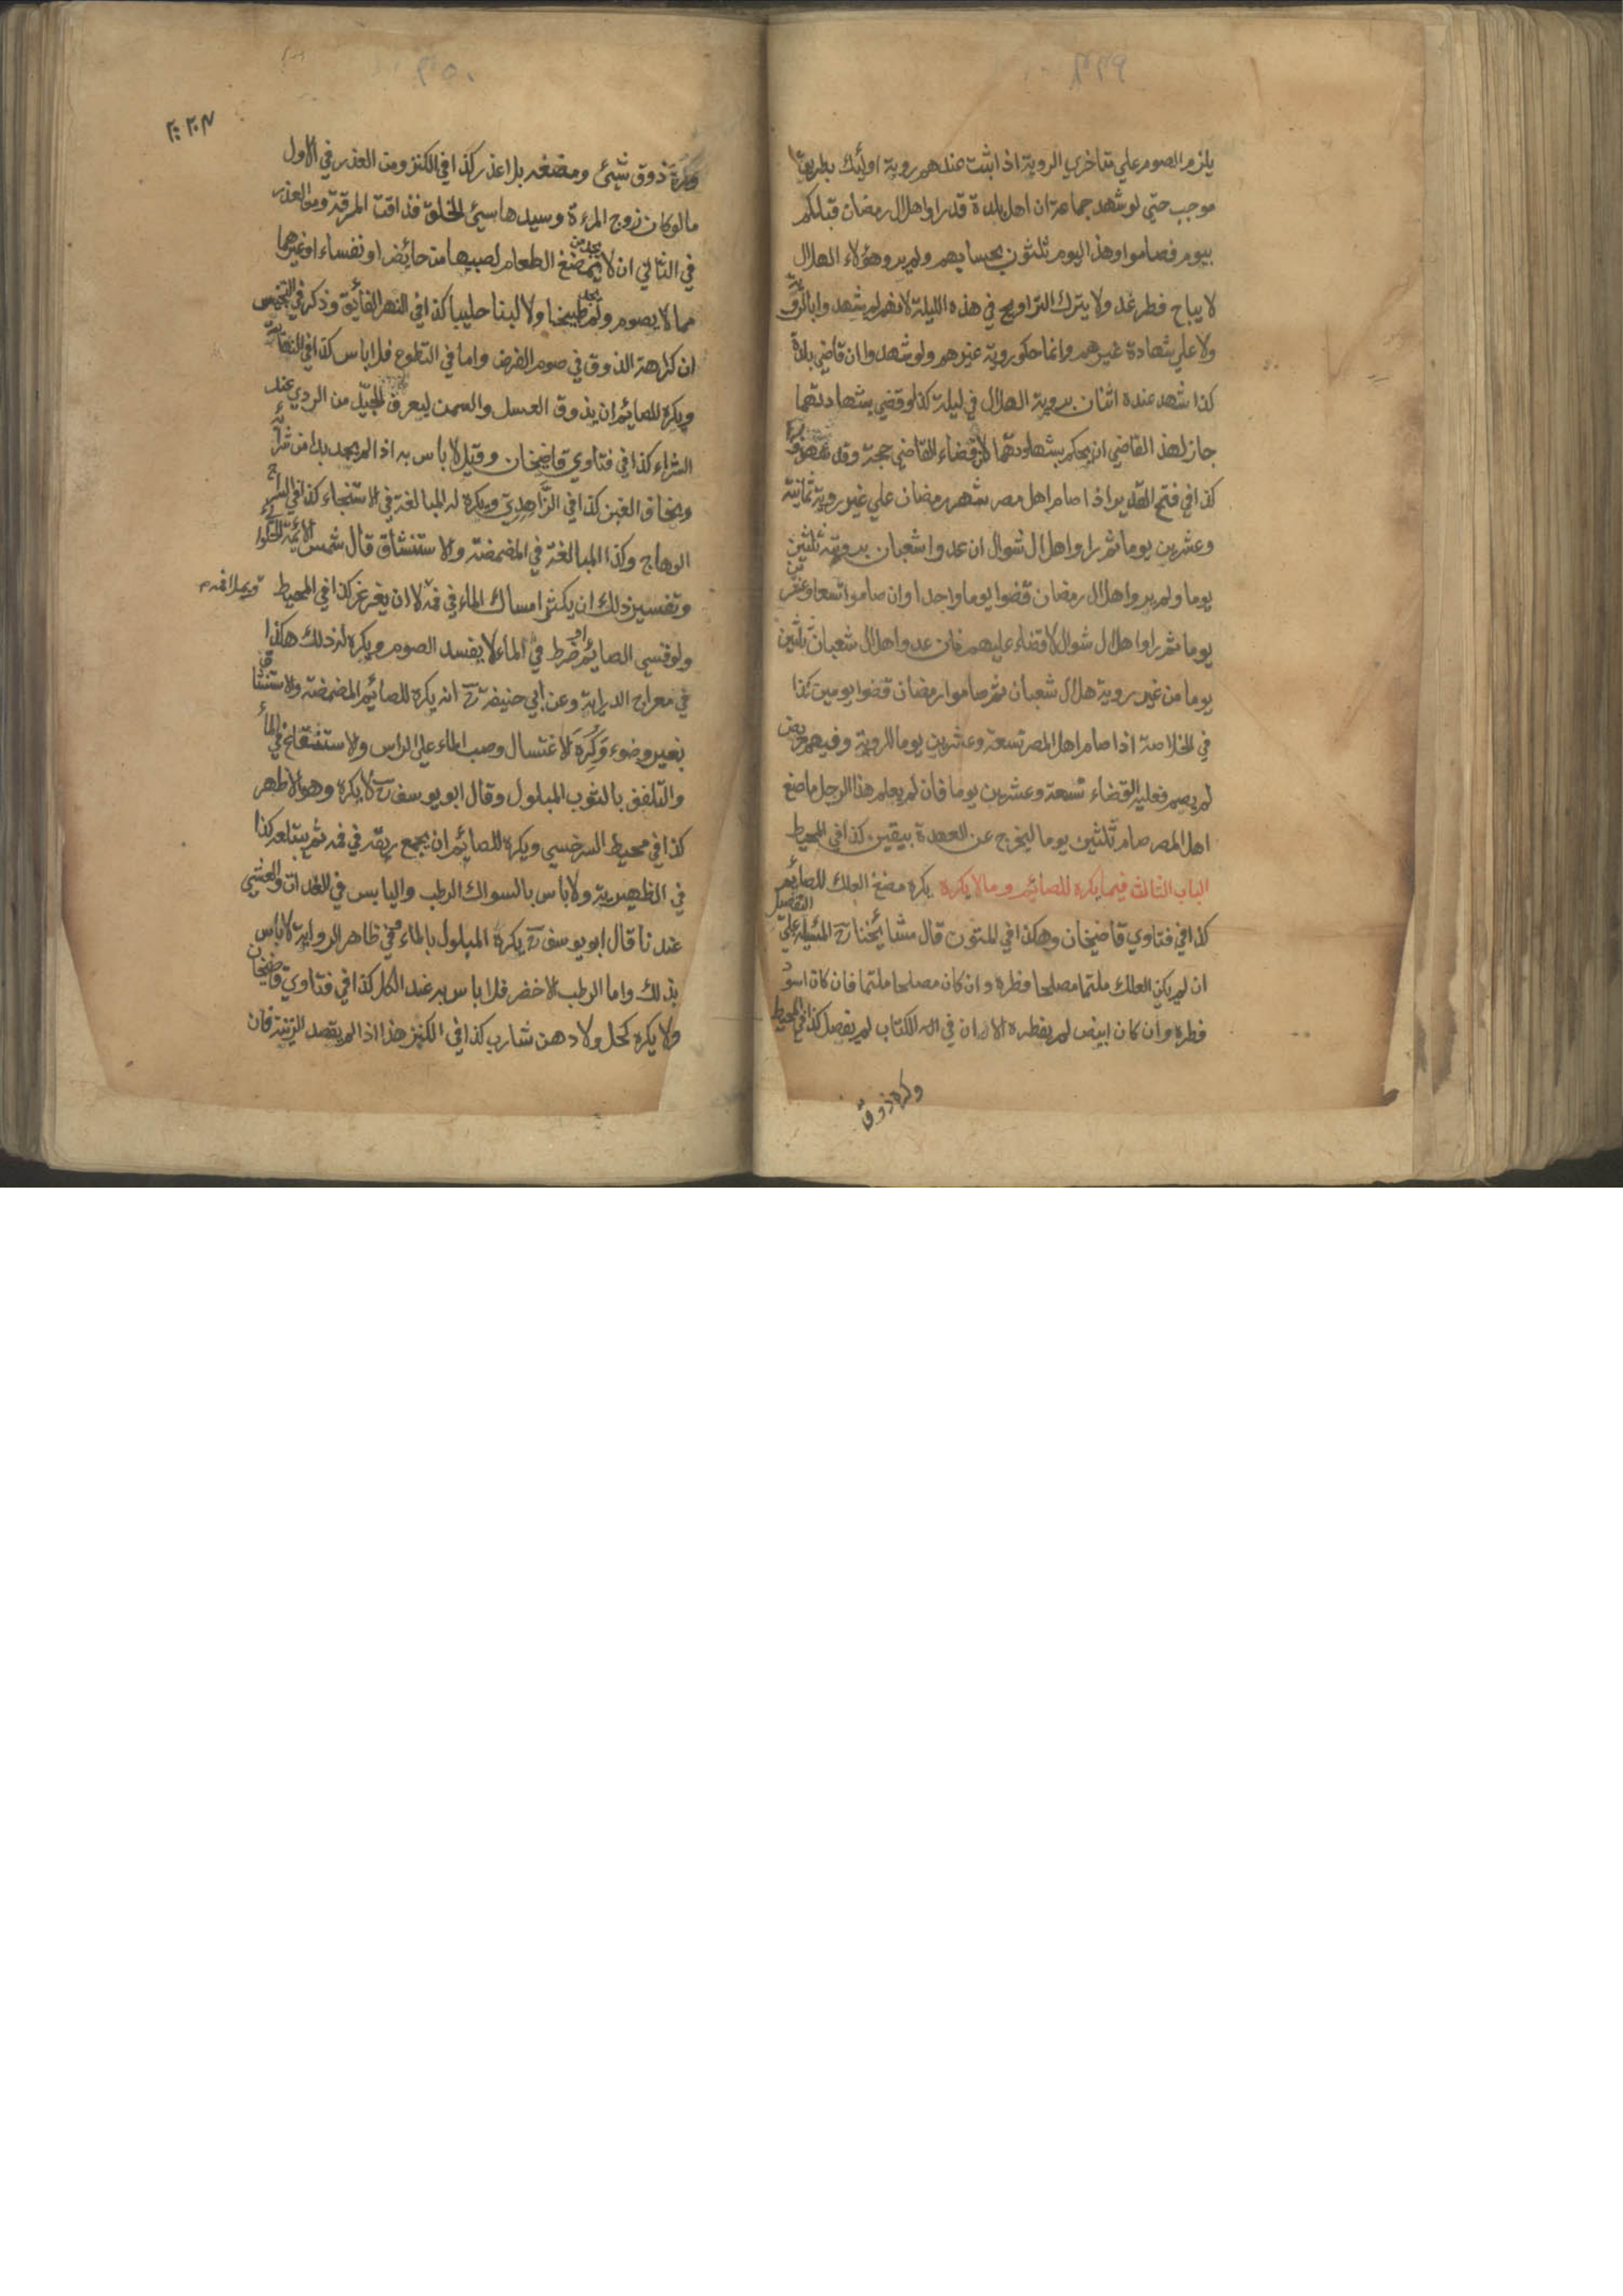 ٢٩٩
يلزم الصوم علي متاخري الروية اذا ثبت عندهم روية اولئك بطريق
موجب حتي لو شهد جماعة ان اهل بلدة قد راوا هلال رمضان قبلكم
بيوم فصاموا وهذا اليوم ثلثون بحسابهم ولم ير وهؤلاء الهلال
لا يباح فطر غد ولا يترك التراويح في هذه الليلة لانهم لم يشهدوا بالروية
ولا علي شهادة غيرهم وانما حكو روية غيرهم ولو شهدوا ان قاضي بلدة
كذا شهد عنده اثنان بروية الهلال في ليلة كذا وقضي بشهادتهما
جاز لهذا القاضي ان يحكم بشهادتهما لان قضاء القاضي حجة وقد
كذا في فتح القدير اذا صام اهل مصر شهر رمضان علي غير روية ثمانية
وعشرين يوما ثم راوا هلال شوال ان عدوا شعبان بروية ثلثين
يوما ولم يروا هلال رمضان قضوا يوما واحدا وان صاموا تسعا وعشرين
يوما ثم راوا هلال شوال لا قضاء عليهم فان عدوا هلال شعبان ثلثين
يوما من غير روية هلال شعبان ثم صاموا رمضان قضوا يومين كذا
في الخلاصة اذا صام اهل المصر تسعة وعشرين يوما للروية وفيهم مريض
لم يصم فعليه القضاء تسعة وعشرين يوما فان لم يعلم هذا الرجل ما صنع
اهل المصر صام ثلثين يوما ليخرج عن العهدة بيقين كذا في المحيط
الباب الثالث فيما يكره للصائم وما لا يكره يكره مضغ العلك للصائم
كذا في فتاوي قاضيخان وهكذا في المتون قال مشائخنا رح المسٔيلة علي التفصيل
ان لم يكن العلك ملتما مصلحا فطره وان كان مصلحا ملتما فان كان اسود
فطره وان كان ابيض لم يفطره الا ان في الكتاب لم يفصل كذا في المحيط
وكره ذوق
وكره ذوق شئ ومضغه بلا عذر كذا في الكنز ومن العذر في الاول
ما لو كان زوج المرءة وسيدها سئ الخلق فذاقت المرقة ومن العذر
في الثاني ان لا يجد من يمضغ الطعام لصبيها من حائض او نفساء او غيرهما
مما لا يصوم ولم يجد طبيخا ولا لبنا حليبا كذا في النهر الفائق وذكر في التجنيس
ان كراهة الذوق في صوم الفرض واما في التطوع فلا باس كذا في النهاية
ويكره للصائم ان يذوق العسل والسمن ليعرف الجيد من الردي عند
الشراء كذا في فتاوي قاضيخان وقيل لا باس به اذا لم يجد بدا من شرائه
ويخاف الغبن كذا في الزاهدي ويكره له المبالغة في الاستنجاء كذا في السراج
الوهاج وكذا المبالغة في المضمضة والاستنشاق قال شمس الائمة الحلوائي
وتفسير ذلك ان يكثر امساك الماء في فمه لا ان يغرغر كذا في المحيط
ويملا فمه
ولو فسي الصائم او ضرط في الماء لا يفسد الصوم ويكره له ذلك هكذا
في معراج الدراية وعن ابي حنيفة رح انه يكره للصائم المضمضة والاستنشاق
بغير وضوء وكره الاغتسال وصب الماء علي الراس والاستنقاع في الماء
والتلفف بالثوب المبلول وقال ابو يوسف رح لا يكره وهو الاظهر
كذا في محيط السرخسي ويكره للصائم ان يجمع ريقه في فمه ثم يبتلعه كذا
في الظهيرية ولا باس بالسواك الرطب واليابس في الغدات والعشي
عندنا قال ابو يوسف رح يكره المبلول بالماء وفي ظاهر الرواية لا باس
بذلك واما الرطب الاخضر فلا باس به عند الكل كذا في فتاوي قاضيخان
ولا يكره كحل ولا دهن شارب كذا في الكنز هذا اذا لم يقصد الزينة فان